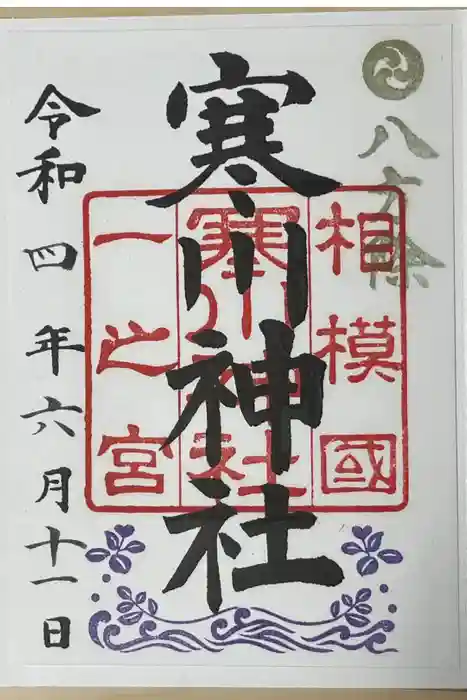 八方除
相模國
寒川神社
一之宮
寒川神社
令和四年六月十一日